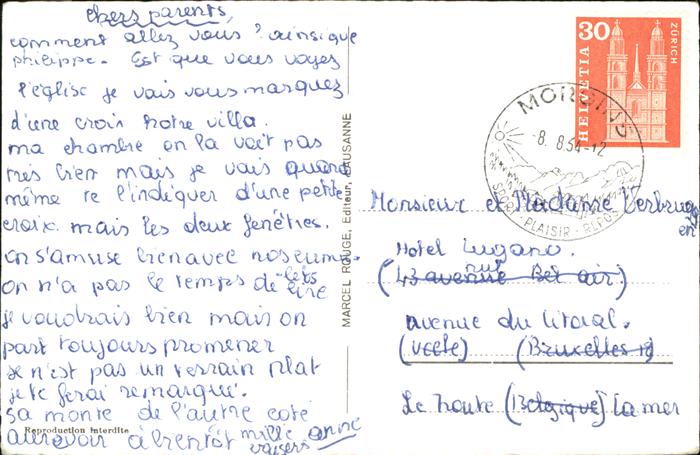 chers parents,
comment allez vous? ainsique
philippe. Est que vous voyez
l'église je vais vous marquez
d'une croix notre villa.
ma chambre on la voit pas
très bien mais je vais quand
même te l'indiquer d'une petite
croix. mais les deux fenêtres.
on s'amuse bien avec nos
on n'a pas le temps de
lire
je voudrais bien mais on
part toujours promener
se n'est pas un terrain plat
je te ferai remarqué.
sa monte de l'autre coté
aurevoir à bientôt mille
baisers anne
Reproduction interdite
MARCEL ROUGE, Editeur, LAUSANNE
HELVETIA 30 ZÜRICH
MORGINS
8. 8.64-12
SPORT-PLAISIR-REPOS
Monsieur et Madame Verbrug
en
Hotel Lugano.
(43 avenue Bel air.)
rue
avenue du litoral.
(Uccle) (Bruxelles 18)
Le Zoute (Belgique) la mer